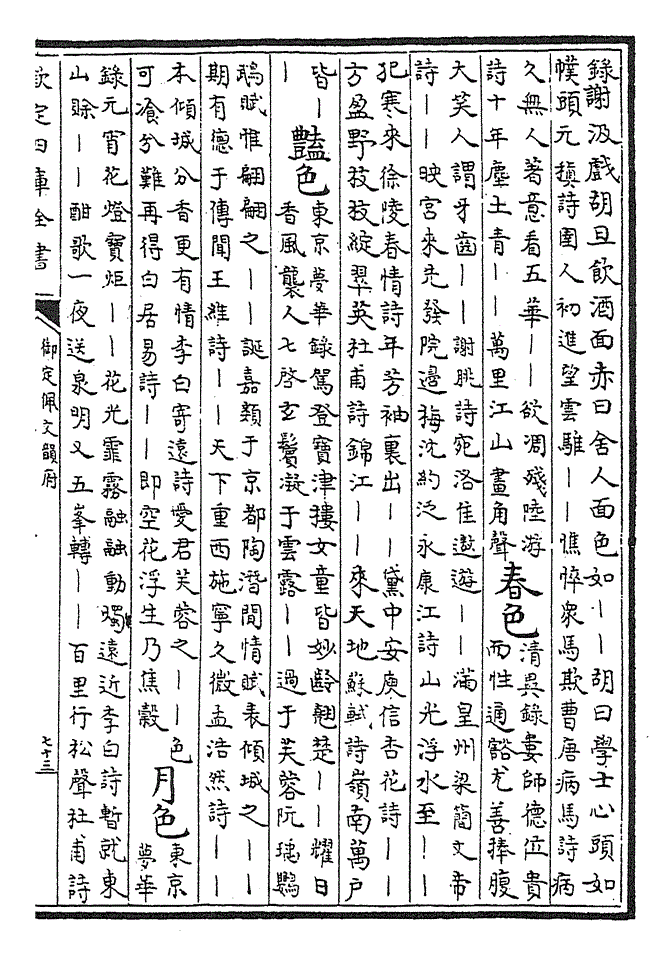 錄謝汲戲胡旦飲酒面赤曰舍人面色如丨丨胡曰學士心頭如
幞頭元稹詩圉人初進望雲騅丨丨憔悴衆馬欺曹唐病馬詩病
久無人著意看五華丨丨欲凋殘陸游
詩十年塵土青丨丨萬里江山畫角聲
春色
清異錄婁師德位貴
而性通豁尤善捧腹
大笑人謂牙齒丨丨謝朓詩宛洛佳遨遊丨丨滿皇州梁簡文帝
詩丨丨映宮來先發院邉梅沈約泛永康江詩山光浮水至丨丨
犯寒來徐陵春情詩年芳袖裏出丨丨黛中安庾信杏花詩丨丨
方盈野枝枝綻翠英杜甫詩錦江丨丨來天地蘇軾詩嶺南萬戶
皆丨
丨
豔色
東京夢華錄駕登寶津樓女童皆妙齡翹楚丨丨耀日
香風襲人七啓玄鬢凝于雲露丨丨過于芙蓉阮瑀鸚
鵡賦惟翩翩之丨丨誕嘉類于京都陶潛閒情賦表傾城之丨丨
期有德于傳聞王維詩丨丨天下重西施寧久微孟浩然詩丨丨
本傾城分香更有情李白寄遠詩愛君芙蓉之丨丨色
可飡兮難再得白居易詩丨丨即空花浮生乃焦穀
月色
東京
夢華
錄元宵花燈寶炬丨丨花光霏霧融融動燭遠近李白詩暫就東
山賒丨丨酣歌一夜送泉明又五峯轉丨丨百里行松聲杜甫詩
欽定四庫全書
御定佩文韻府
七十三